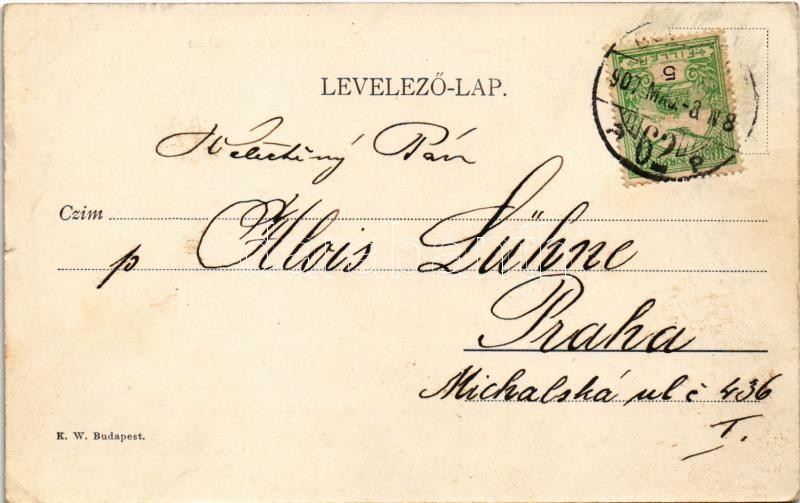 LEVELEZŐ-LAP.
FILLER
5
907 MÁJ. -8 N 8
Pán
Czim
p Alois Lühne
Praha
Michalská ul č 436
I.
K. W. Budapest.